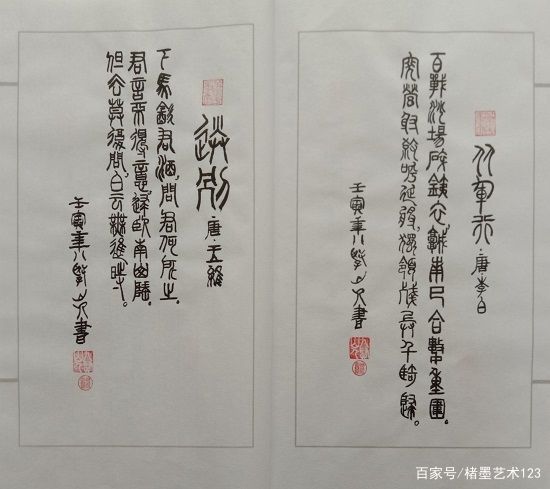 从軍行·唐李白
百戰沙場碎鐵衣,城南已合數重圍。
突營射殺呼延將,獨領殘兵千騎歸。
壬寅年八書
送別
唐·王維
下馬飲君酒,問君何所之。
君言不得意,歸臥南山陲。
但去莫復問,白云無盡時。
壬寅年八書
百家号/楮墨艺术123